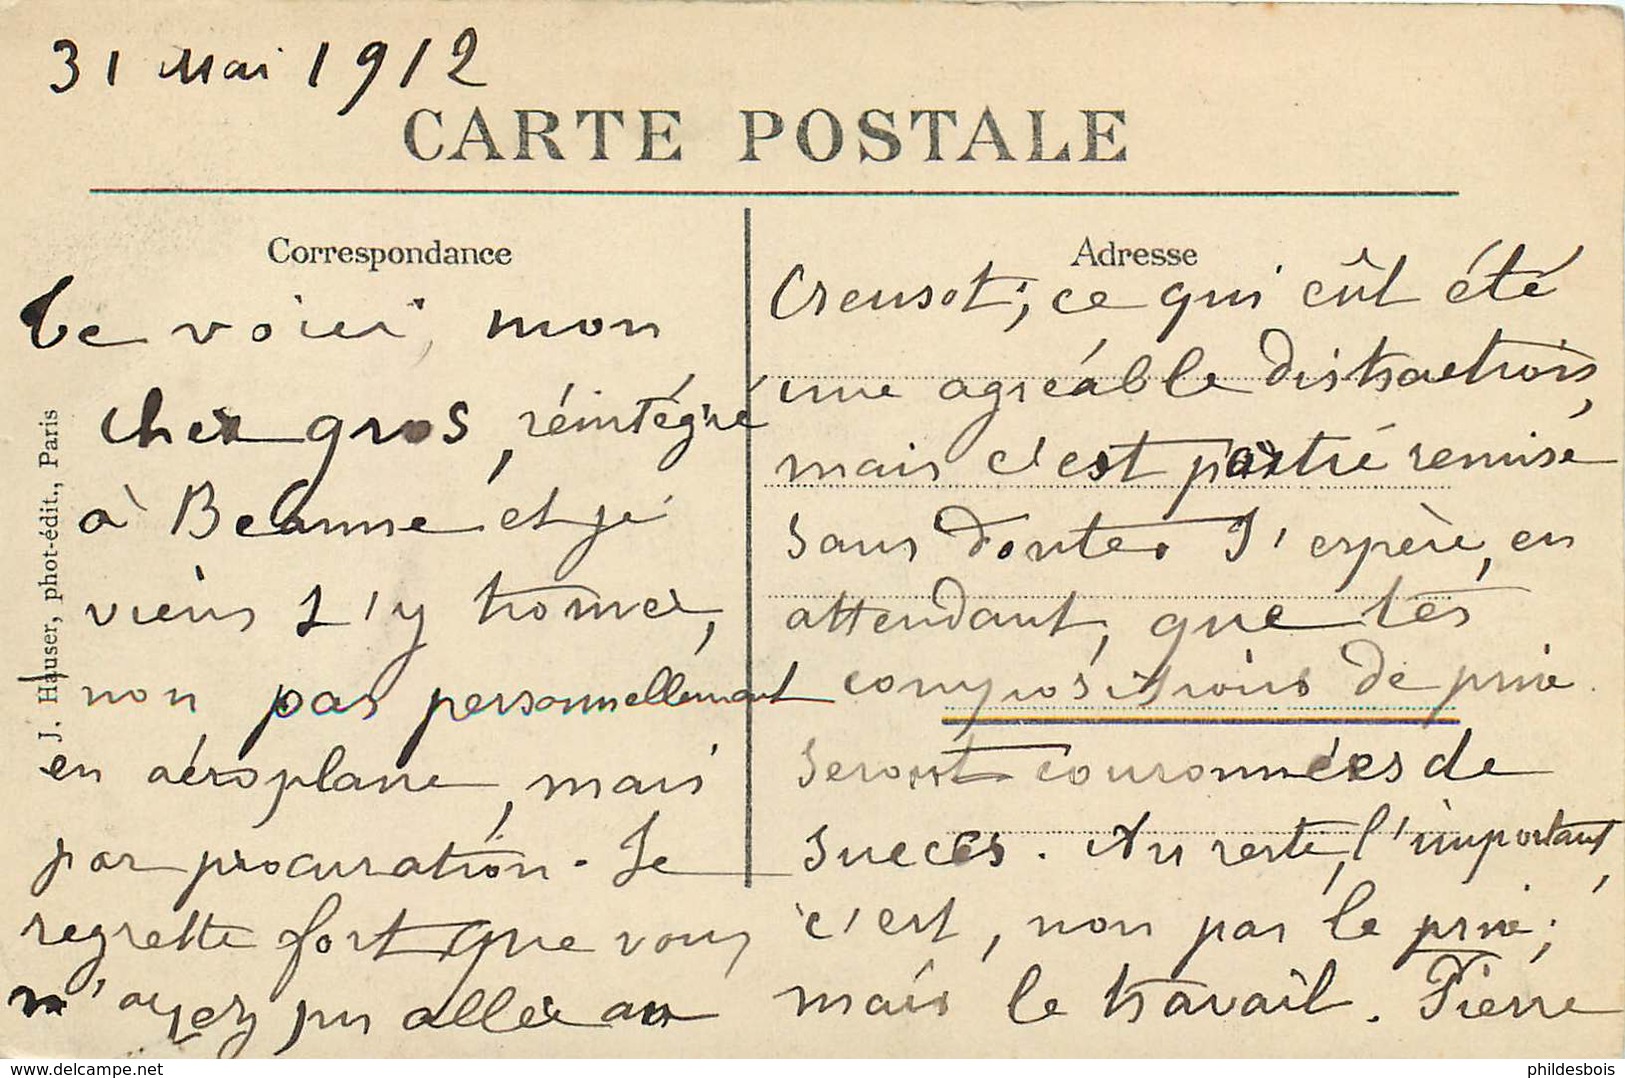 31 Mai 1912
CARTE POSTALE
Correspondance
Te voici, mon
cher gros, réintégré
à Beaune et je
viens t'y trouver,
non pas personnellement
en aéroplane, mais
par procuration. Je
regrette fort que vous
n'ayez pu aller au
Adresse
Creusot; ce qui eût été
une agréable distraction,
mais c'est partie remise
sans doute. J'espère, en
attendant, que tes
compositions de prix
seront couronnées de
succès. Au reste, l'important,
c'est, non pas le prix;
mais le travail. Pierre
J. Hauser, phot-édit., Paris
delcampe.net
phildesbois